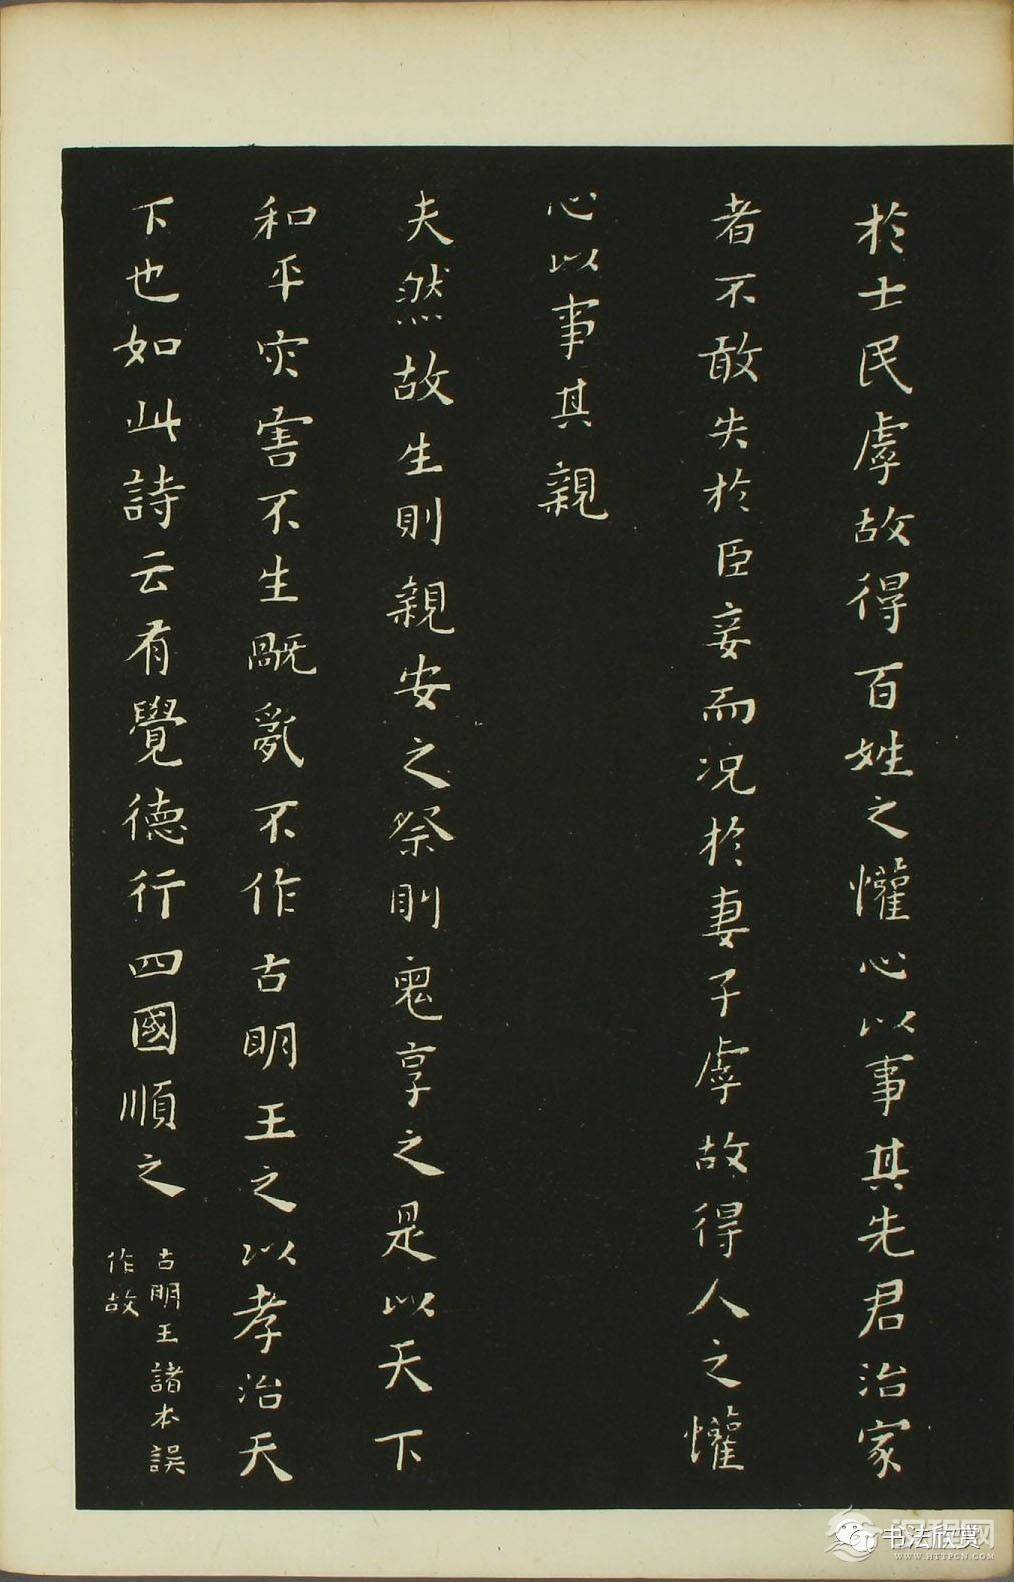 於士民虖故得百姓之懽心以事其先君治家
者不敢失於臣妾而況於妻子虖故得人之懽
心以事其親
夫然故生則親安之祭則鬼享之是以天下
和平灾害不生既亂不作古明王之以孝治天
下也如此詩云有覺德行四國順之
古明王諸本誤
作故
汉程网
WWW.HTTPCN.COM
书法欣赏